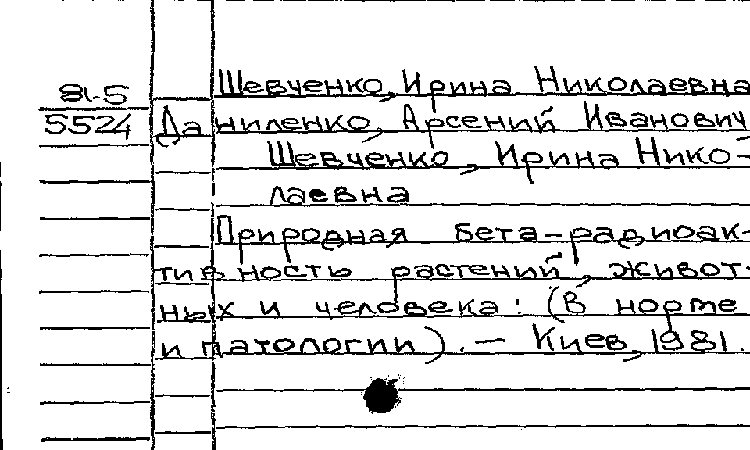 Шевченко, Ирина Николаевна
81-5
5524 Даниленко, Арсений Иванович
Шевченко, Ирина Нико-
лаевна
Природная бета-радиоак-
тивность растений, живот-
ных и человека: (В норме
и патологии). — Киев, 1981.